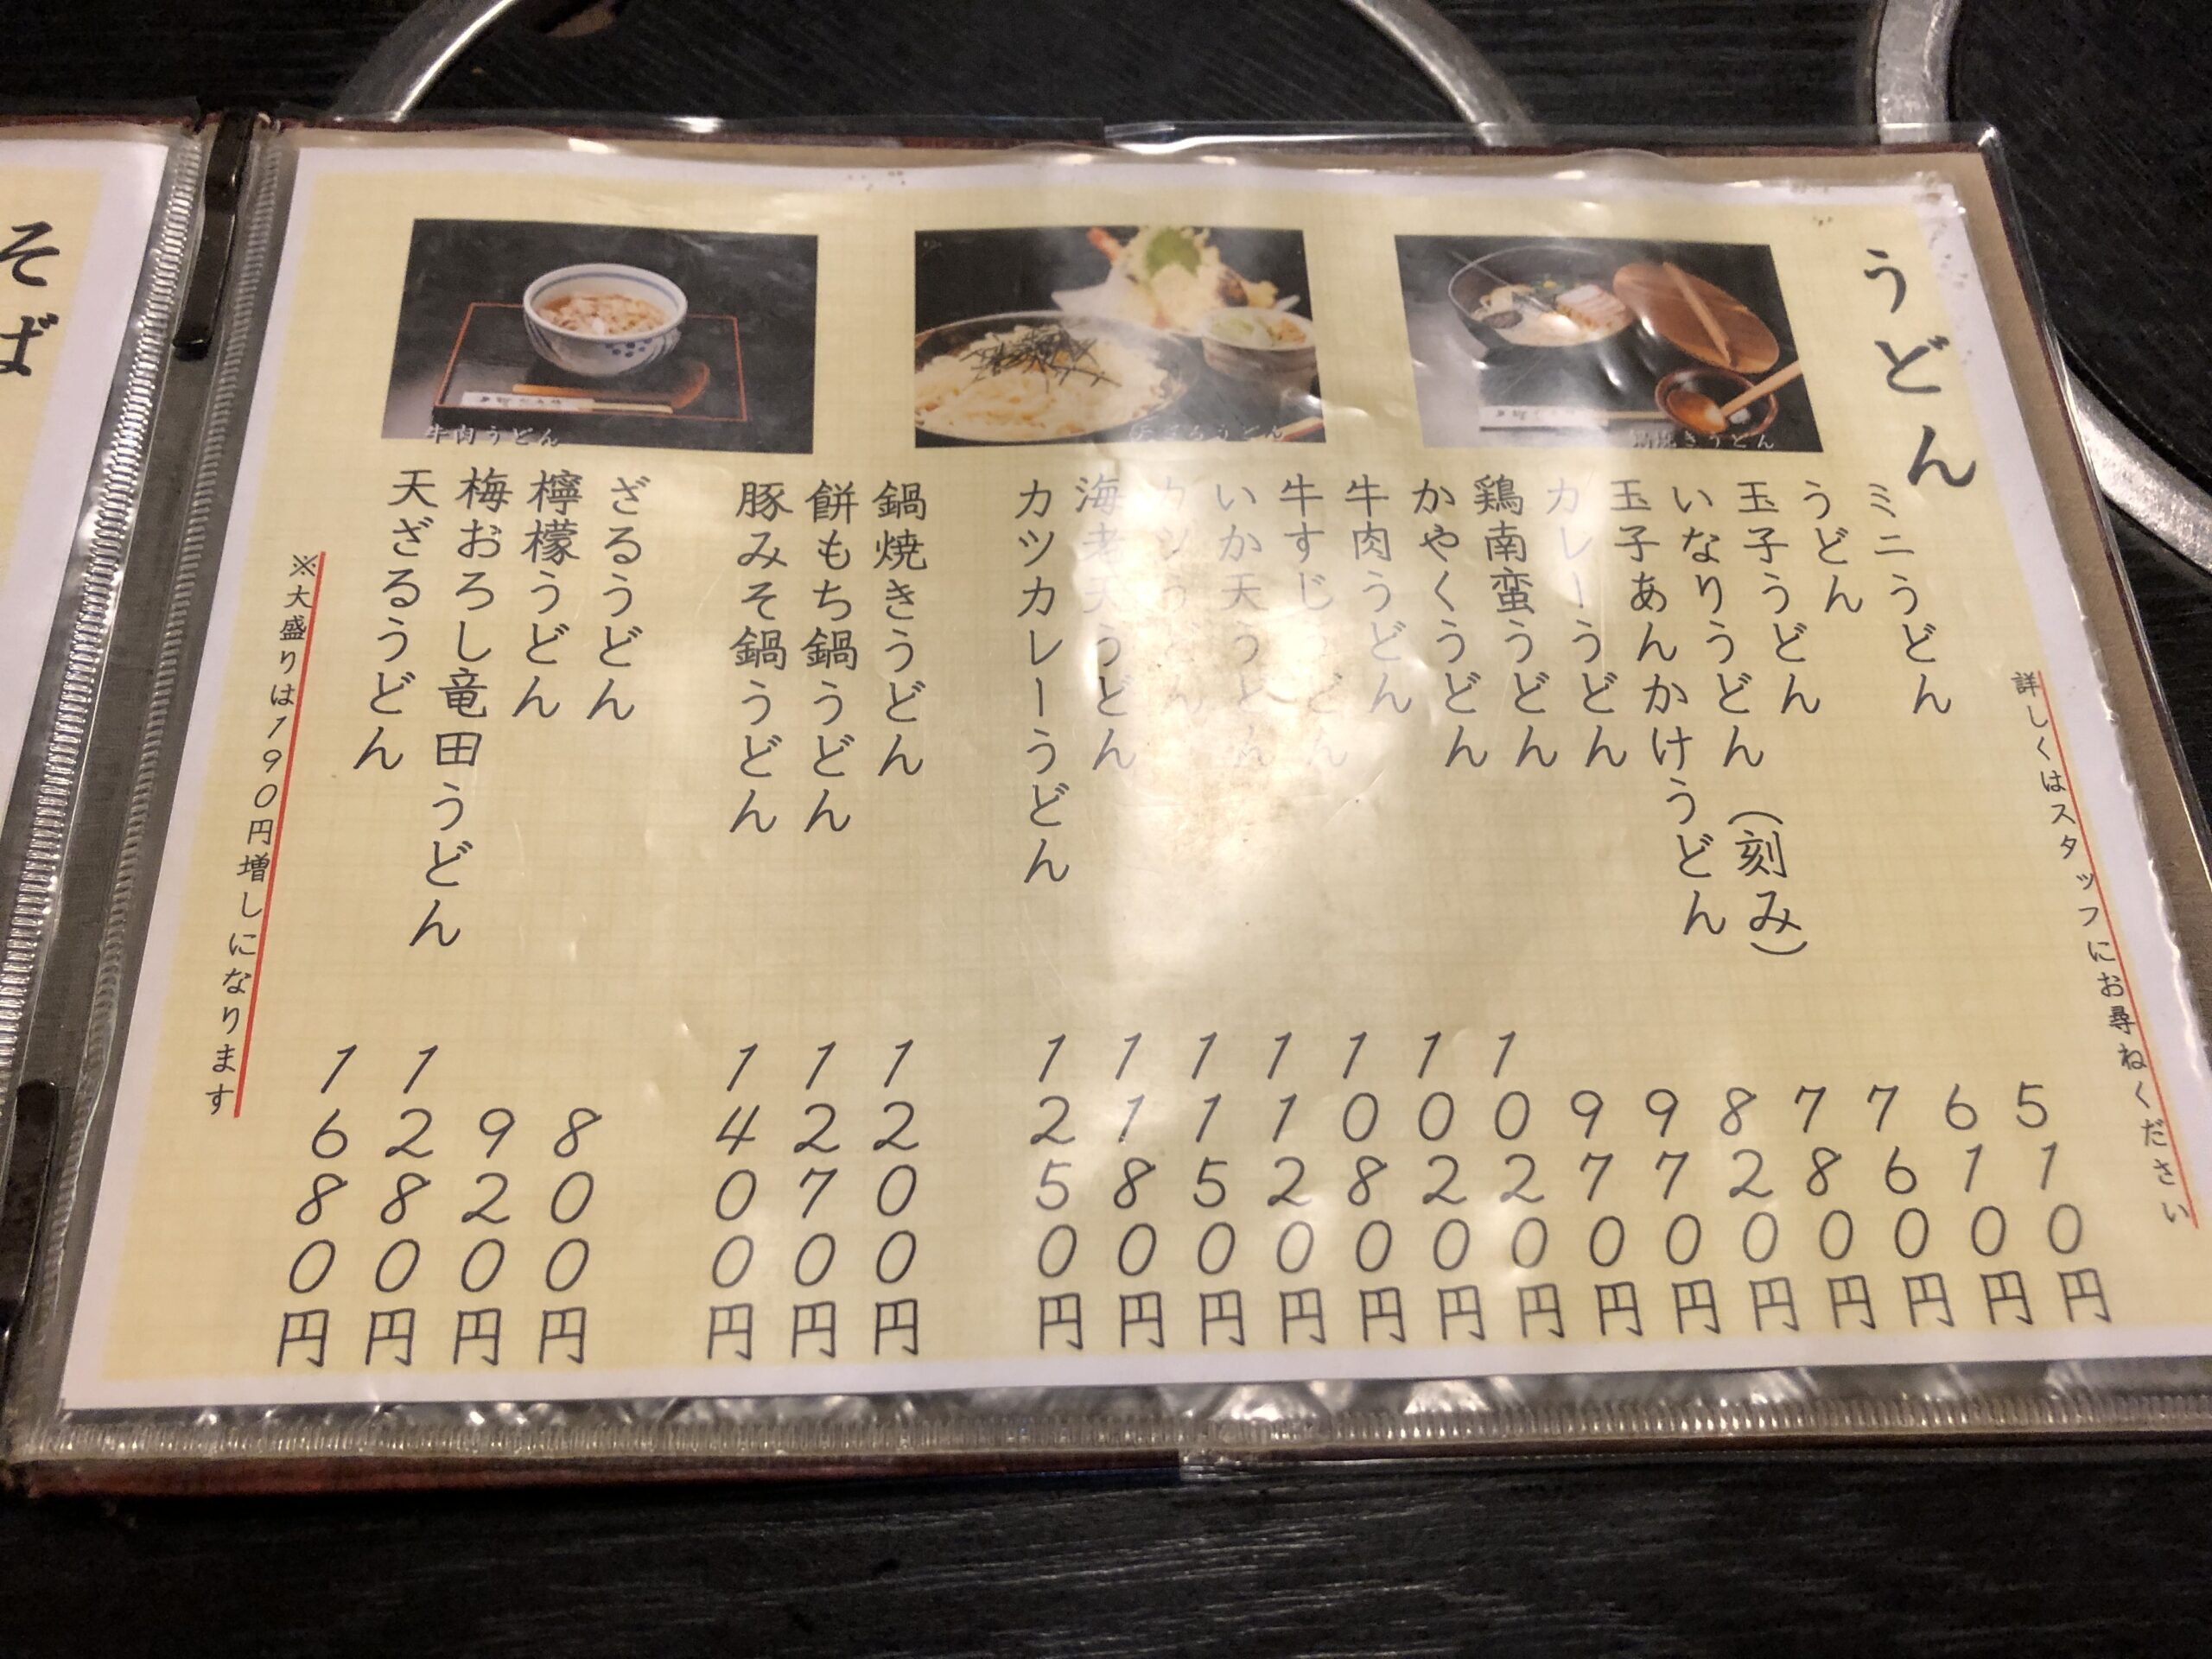 詳しくはスタッフにお尋ねください
うどん
鍋焼きうどん
天ざるうどん
牛肉うどん
ミニうどん 510円
うどん 610円
玉子うどん 760円
いなりうどん（刻み） 780円
玉子あんかけうどん 820円
カレーうどん 970円
鶏南蛮うどん 970円
かやくうどん 1020円
牛肉うどん 1020円
牛すじうどん 1080円
いか天うどん 1120円
カツうどん 1150円
海老天うどん 1180円
カツカレーうどん 1250円
鍋焼きうどん 1200円
餅もち鍋うどん 1270円
豚みそ鍋うどん 1400円
ざるうどん 800円
檸檬うどん 920円
梅おろし竜田うどん 1280円
天ざるうどん 1680円
※大盛りは190円増しになります
そば